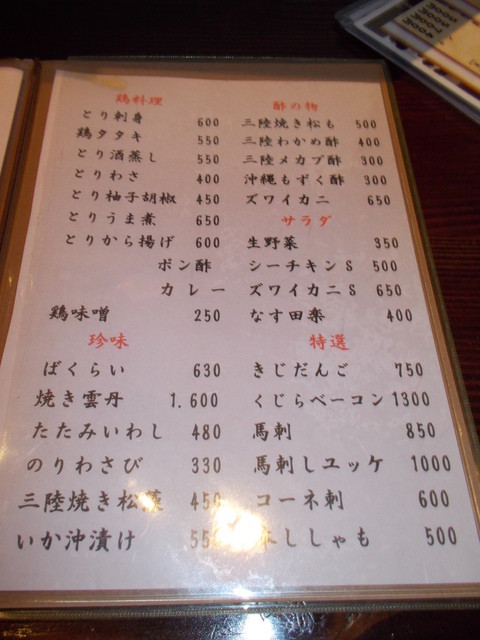 鶏料理
とり刺身 600
鶏タタキ 550
とり酒蒸し 550
とりわさ 400
とり柚子胡椒 450
とりうま煮 650
とりから揚げ 600
ポン酢
カレー
鶏味噌 250
珍味
ばくらい 630
焼き雲丹 1.600
たたみいわし 480
のりわさび 330
三陸焼き松藻 450
いか沖漬け
酢の物
三陸焼き松も 500
三陸わかめ酢 400
三陸メカブ酢 300
沖縄もずく酢 300
ズワイカニ 650
サラダ
生野菜 350
シーチキンS 500
ズワイカニS 650
なす田楽 400
特選
きじだんご 750
くじらベーコン 1300
馬刺 850
馬刺しユッケ 1000
コーネ刺 600
ししゃも 500